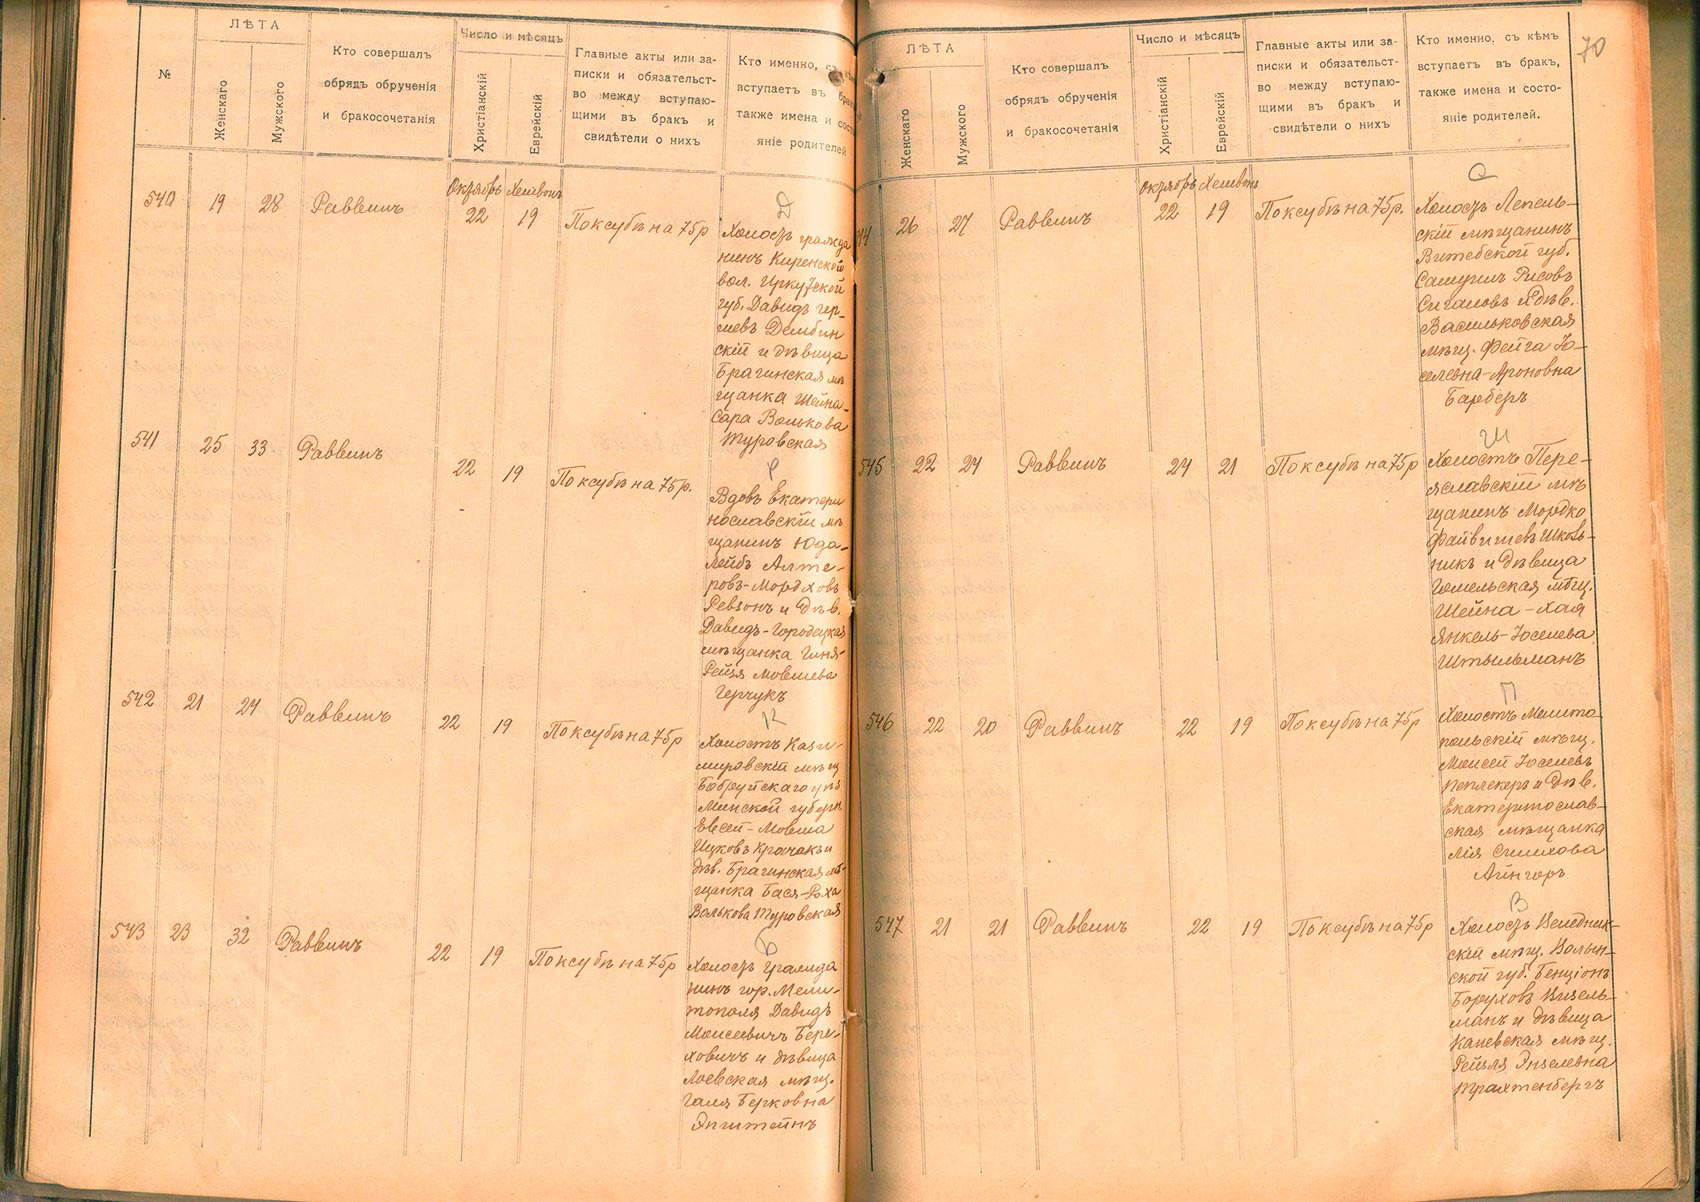 №
ЛѢТА
Женскаго
Мужского
Кто совершалъ
обрядъ обрученія
и бракосочетанія
Число и мѣсяцъ
Христіанскій
Еврейскій
Главные акты или за-
писки и обязательст-
во между вступаю-
щими въ бракъ и
свидѣтели о нихъ
Кто именно, съ
вступаетъ въ
также имена и состо
яніе родителей
540 19 28 Раввинъ
Октябрь Хешвонъ
22 19 По ксубѣ на 75р
Д
Холостъ гражда
нинъ Киренской
вол. Иркутской
губ. Давидъ Гер-
шевъ Дембин
скій и дѣвица
Брагинская мѣ
щанка Шейна-
Сара Волькова
Туровская
541 25 33 Раввинъ 22 19 По ксубѣ на 75р.
Р
Вдовъ Екатери
нославскій мѣ
щанинъ Юда-
Лейбъ Алте-
ровъ-Мордховъ
Ревзонъ и дѣв.
Давидъ-Городецкая
мѣщанка Гиня-
Рейзя Мовшева
Герчукъ
542 21 24 Раввинъ 22 19 По ксубѣ на 75р
К
Холостъ Кази-
мировскій мѣщ
Бобруйскаго уѣз
Минской губерн.
Евсей-Мовша
Ицковъ и
дѣв. Брагинская мѣ-
щанка Бася-Роха
Валькова Туровская
543 23 32 Раввинъ 22 19 По ксубѣ на 75р
Б
Холостъ гражда
нинъ гор. Мели-
тополя Давидъ
Моисеевичъ Бер-
ховичъ и дѣвица
Лоевская мѣщ.
Галя Берковна
Эпштейнъ
70
ЛѢТА
Женскаго
Мужского
Кто совершалъ
обрядъ обрученія
и бракосочетанія
Число и мѣсяцъ
Христіанскій
Еврейскій
Главные акты или за-
писки и обязательст-
во между вступаю-
щими въ бракъ и
свидѣтели о нихъ
Кто именно, съ кѣмъ
вступаетъ въ бракъ,
также имена и состо-
яніе родителей.
44 26 27 Раввинъ
Октябрь Хешвонъ
22 19 По ксубѣ на 75р.
С
Холостъ Лепель-
скій мѣщанинъ
Витебской губ.
Самуилъ
Сигаловъ и дѣв.
Васильковская
мѣщ. Фейга Іо-
селевна-Ароновна
Барберъ
545 22 24 Раввинъ 24 21 По ксубѣ на 75р
Ш
Холостъ Пере-
яславскій мѣ
щанинъ Мордко
Файвишевъ Школь-
никъ и дѣвица
Гомельская мѣщ.
Шейна-Хая
Янкель-Іоселева
Штыльманъ
546 22 20 Раввинъ 22 19 По ксубѣ на 75р
П
Холостъ Мелито-
польскій мѣщ.
Моисей Іоселевъ
Пеплекеръ и дѣв.
Екатеринослав-
ская мѣщанка
Лія Симхова
Айнгоръ
547 21 21 Раввинъ 22 19 По ксубѣ на 75р
В
Холостъ Веледник-
скій мѣщ. Волын-
ской губ. Бенціонъ
Боруховъ Визель-
манъ и дѣвица
Каневская мѣщ.
Рейзля Энзелевна
Трахтенбергъ